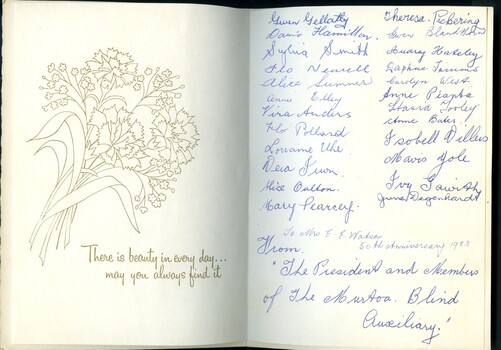 There is beauty in every day...
may you always find it
Gwen Gellatly
Doris Hamilton.
Sylvia Smith
Flo Newell
Alice Summer
Annie Elley
Vera Anders
Flo Pollard
Lorraine Uhe.
Vera Irwin.
Alice Oulton.
Mary Pearcey.
Theresa Pickering
Gwen
Audrey Hateley
Daphne Timmins
Carolyn West
Anne
Cooley
Anne Bates.
Isobell Dillers
Mavis Yole
Ivy
June Degenhardt
To Mrs E. E. Watson
50th Anniversary 1983
From.
"The President and Members
of The Murtoa. Blind
Auxiliary."